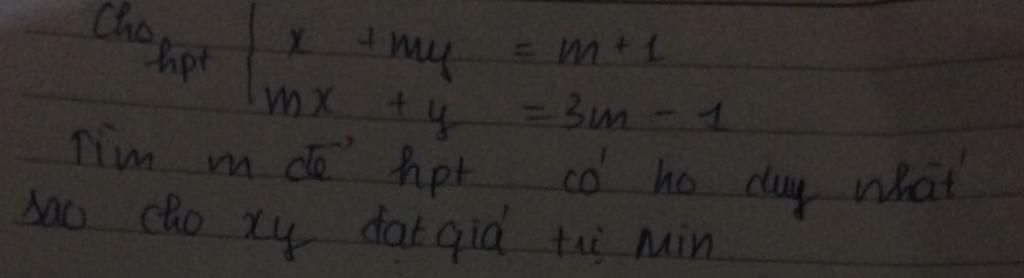 Cho hpt { x + my = m + 1
mx + y = 3m - 1
Tìm m để hpt có no duy nhất
sao cho xy đạt giá trị Min